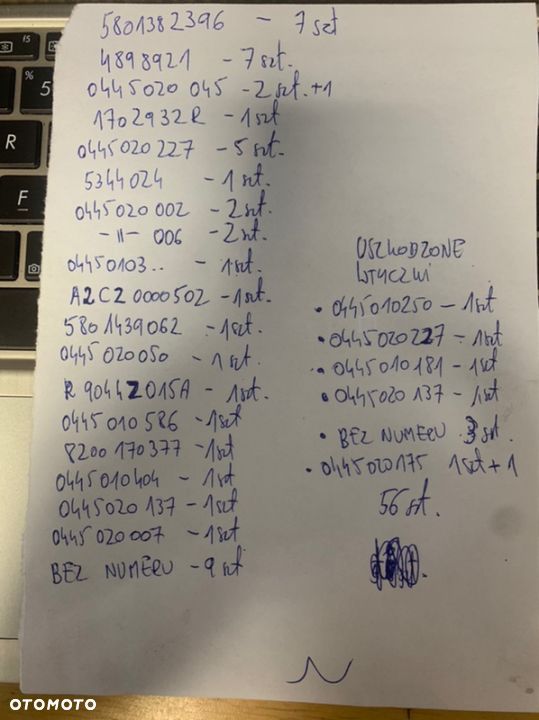 5801382396 - 7 szt
4898921 - 7 szt.
0445020 045 - 2 szt. +1
1702932R - 1 szt
0445020227 - 5 szt.
5344024 - 1 szt.
0445020 002 - 2 szt.
-||- 006 - 2 szt.
04450103.. - 1 szt.
A2C20000502 - 1 szt.
5801439062 - 1 szt.
0445020050 - 1 szt.
R90442015A - 1 szt.
0445010586 - 1 szt
8200170377 - 1 szt
0445010404 - 1 szt
0445020 137 - 1 szt
0445020007 - 1 szt
BEZ NUMERU - 9 szt
USZKODZONE
WTYCZKI
• 0445010250 - 1 szt
• 0445020227 - 1 szt
• 0445010181 - 1 szt
• 0445020 137 - 1 szt
• BEZ NUMERU 3 szt.
• 0445020175 1 szt + 1
56 szt.
F5
%
5
R
F
OTOMOTO